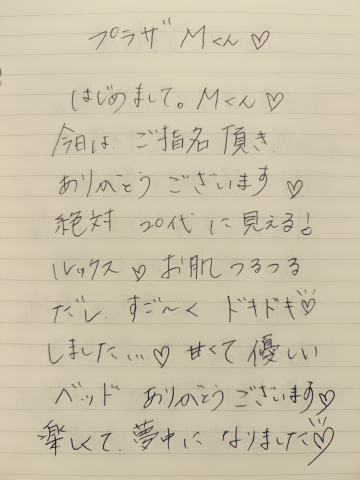 プラザ Mくん♡
はじめまして。Mくん♡
今日は、ご指名 頂き、
ありがとう ございます♡
絶対 20代 に 見える!
ルックス♡ お肌 つるつる
だし、すご〜く ドキドキ♡
しました…♡ 甘くて 優しい
ベッド ありがとうございます♡
楽しくて、夢中に なりました♡